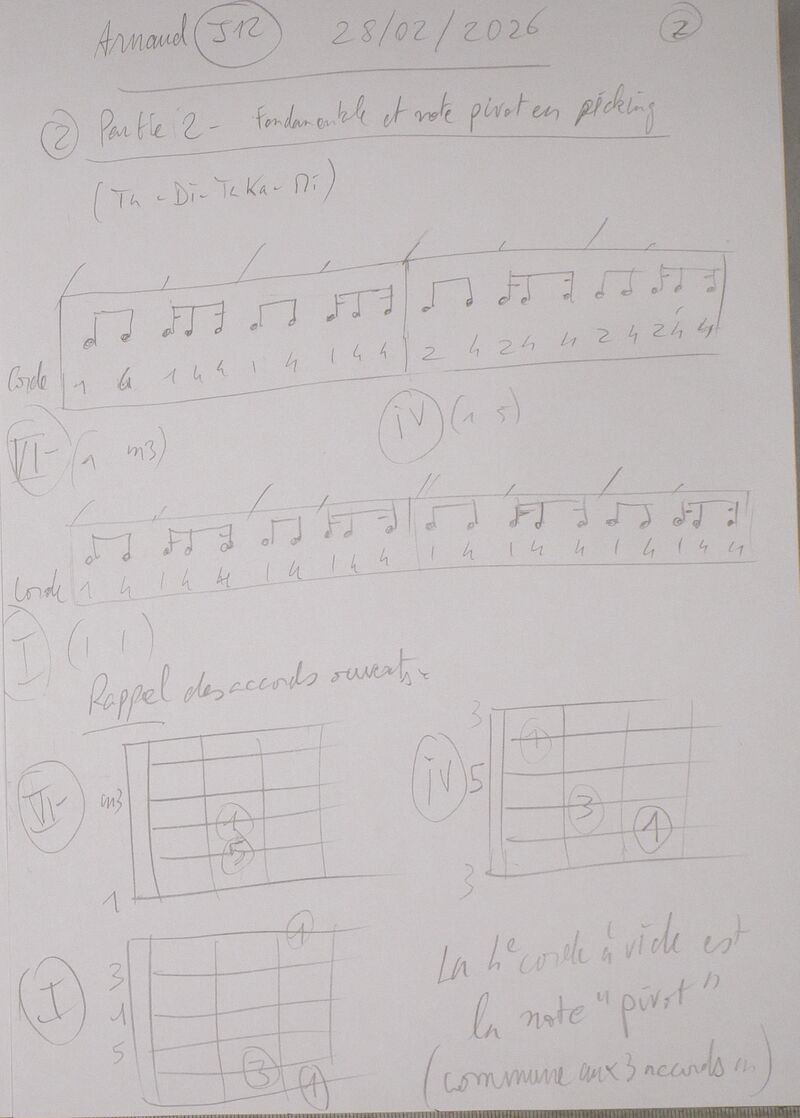 Arnaud J12 28/02/2026 2
2 Partie 2 - Fondamentale et note pivot en picking
(Ta - Di - Ta Ka - Mi)
Corde 1 4 1 4 4 1 4 1 4 4 2 4 2 4 4 2 4 2 4 4
VI- (1 m3) IV (1 5)
Corde 1 4 1 4 4 1 4 1 4 4 1 4 1 4 4 1 4 1 4 4
I (1 1)
Rappel des accords ouverts
VI- m3 1 5 1
IV 3 1 5 3 1 3
I 1 3 1 5 3 1
La 4e corde à vide est
la note "pivot"
(commune aux 3 accords)